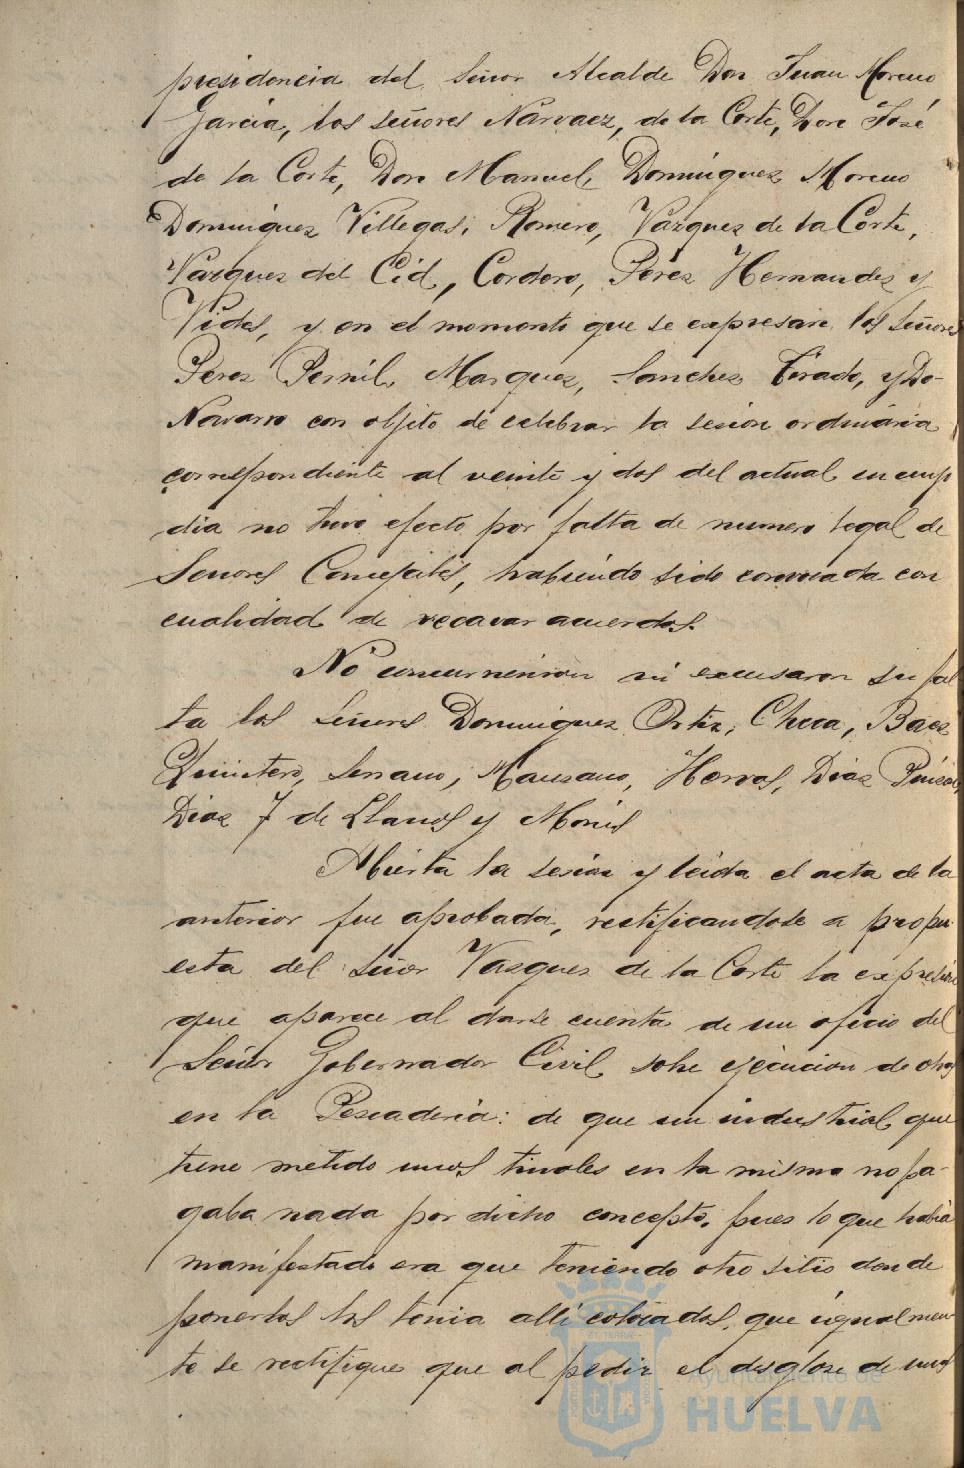 presidencia del Señor Alcalde Don Juan Moreno
Garcia, los señores Narvaez, de la Corte, Don José
de la Corte, Don Manuel Dominguez Moreno
Dominguez Villegas, Romero, Vazquez de la Corte,
Vazquez del Cid, Cordero, Perez Hernandez y
Vides, y en el momento que se expresara los Señores
Perez Pernil, Marquez, Sanchez Tirado, y Do-
Navarro con objeto de celebrar la sesion ordinaria
correspondiente al veinte y dos del actual en cuyo
dia no tuvo efecto por falta de numero legal de
Señores Concejales, habiendo sido convocada con
cualidad de recavar acuerdos.
No concurrieron ni excusaron su fal
ta los Señores Dominguez Ortiz, Checa, Baez
Quintero, Serrano, Manzano, Hervas, Diaz
Diaz F de Llanos y
Abierta la sesion y leida el acta de la
anterior fue aprobada, rectificandose a propu
esta del Señor Vazquez de la Corte la expresion
que aparece al darse cuenta de un oficio del
Señor Gobernador Civil sobre ejecucion de obras
en la Pescaderia: de que un industrial que
tiene metido unos tinales en la misma no pa-
gaba nada por dicho concepto, pues lo que habia
manifestado era que teniendo otro sitio donde
ponerlos los tenia alli colocados, que igualmen
te se rectifique que al pedir el desglose de unos
Ayuntamiento de
HUELVA